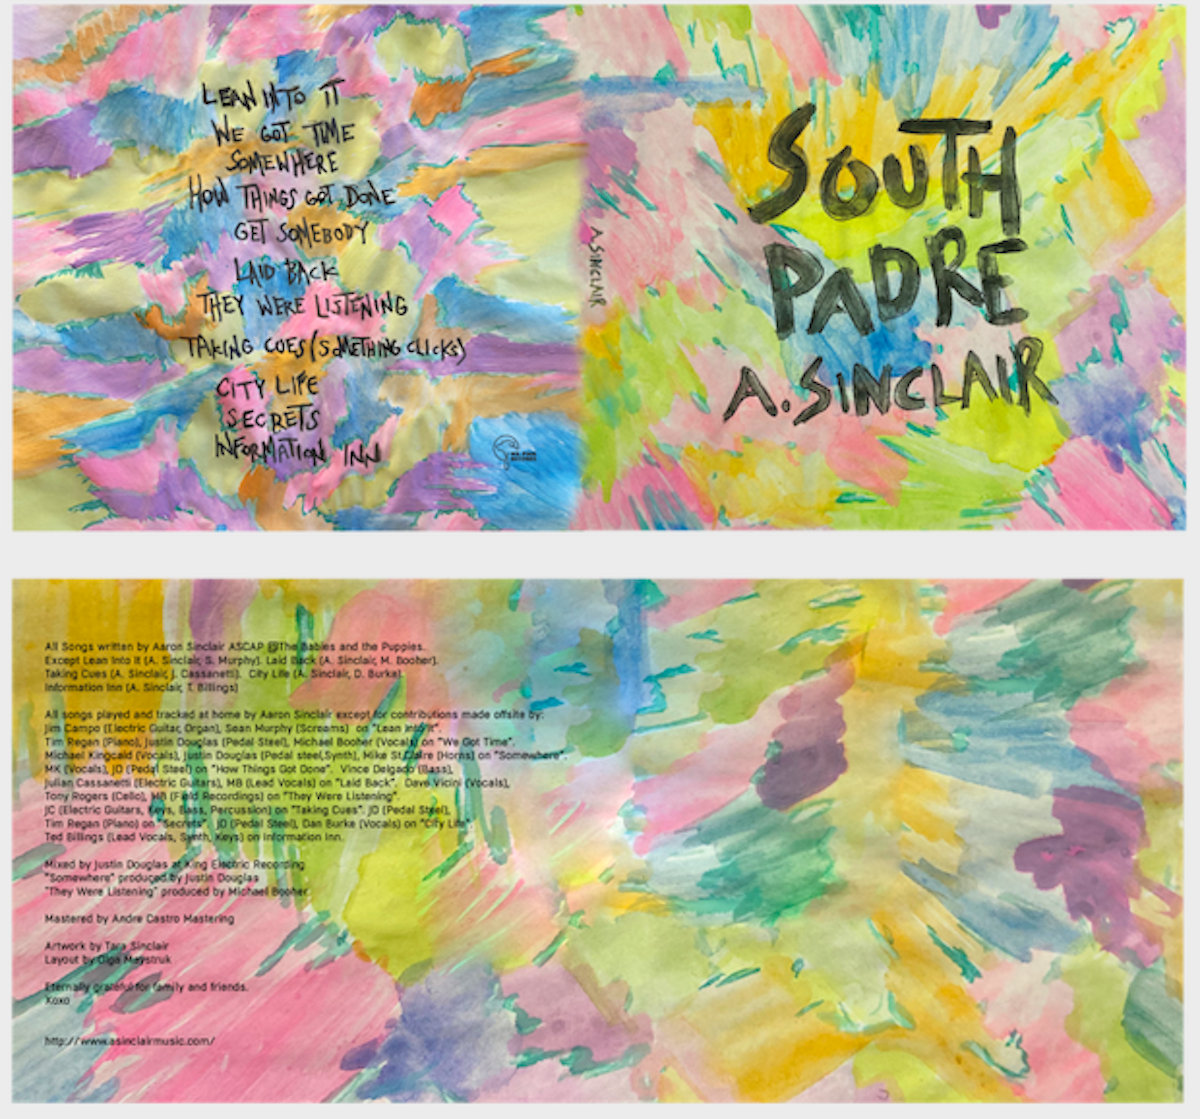 LEAN INTO IT
WE GOT TIME
SOMEWHERE
HOW THINGS GOT DONE
GET SOMEBODY
LAID BACK
THEY WERE LISTENING
TAKING CUES (SOMETHING CLICKS)
CITY LIFE
SECRETS
INFORMATION INN
A. SINCLAIR
SOUTH
PADRE
A. SINCLAIR
All Songs written by Aaron Sinclair ASCAP @The Babies and the Puppies.
Except Lean Into It (A. Sinclair, S. Murphy). Laid Back (A. Sinclair, M. Booher).
Taking Cues (A. Sinclair, J. Cassanetti). City Life (A. Sinclair, D. Burke).
Information Inn (A. Sinclair, T. Billings)
All songs played and tracked at home by Aaron Sinclair except for contributions made offsite by:
Jim Campo (Electric Guitar, Organ), Sean Murphy (Screams) on "Lean Into It".
Tim Regan (Piano), Justin Douglas (Pedal Steel), Michael Booher (Vocals) on "We Got Time".
Michael Kingcaid (Vocals), Justin Douglas (Pedal steel,Synth), Mike St.Claire (Horns) on "Somewhere".
MK (Vocals), JD (Pedal Steel) on "How Things Got Done". Vince Delgado (Bass),
Julian Cassanetti (Electric Guitars), MB (Lead Vocals) on "Laid Back". Dave Vicini (Vocals),
Tony Rogers (Cello), MB (Field Recordings) on "They Were Listening".
JC (Electric Guitars, Keys, Bass, Percussion) on "Taking Cues". JD (Pedal Steel),
Tim Regan (Piano) on "Secrets". JD (Pedal Steel), Dan Burke (Vocals) on "City Life".
Ted Billings (Lead Vocals, Synth, Keys) on Information Inn.
Mixed by Justin Douglas at King Electric Recording
"Somewhere" produced by Justin Douglas
"They Were Listening" produced by Michael Booher
Mastered by Andre Castro Mastering
Artwork by Tara Sinclair
Layout by Olga Maystruk
Eternally grateful for family and friends.
Xoxo
http://www.asinclairmusic.com/